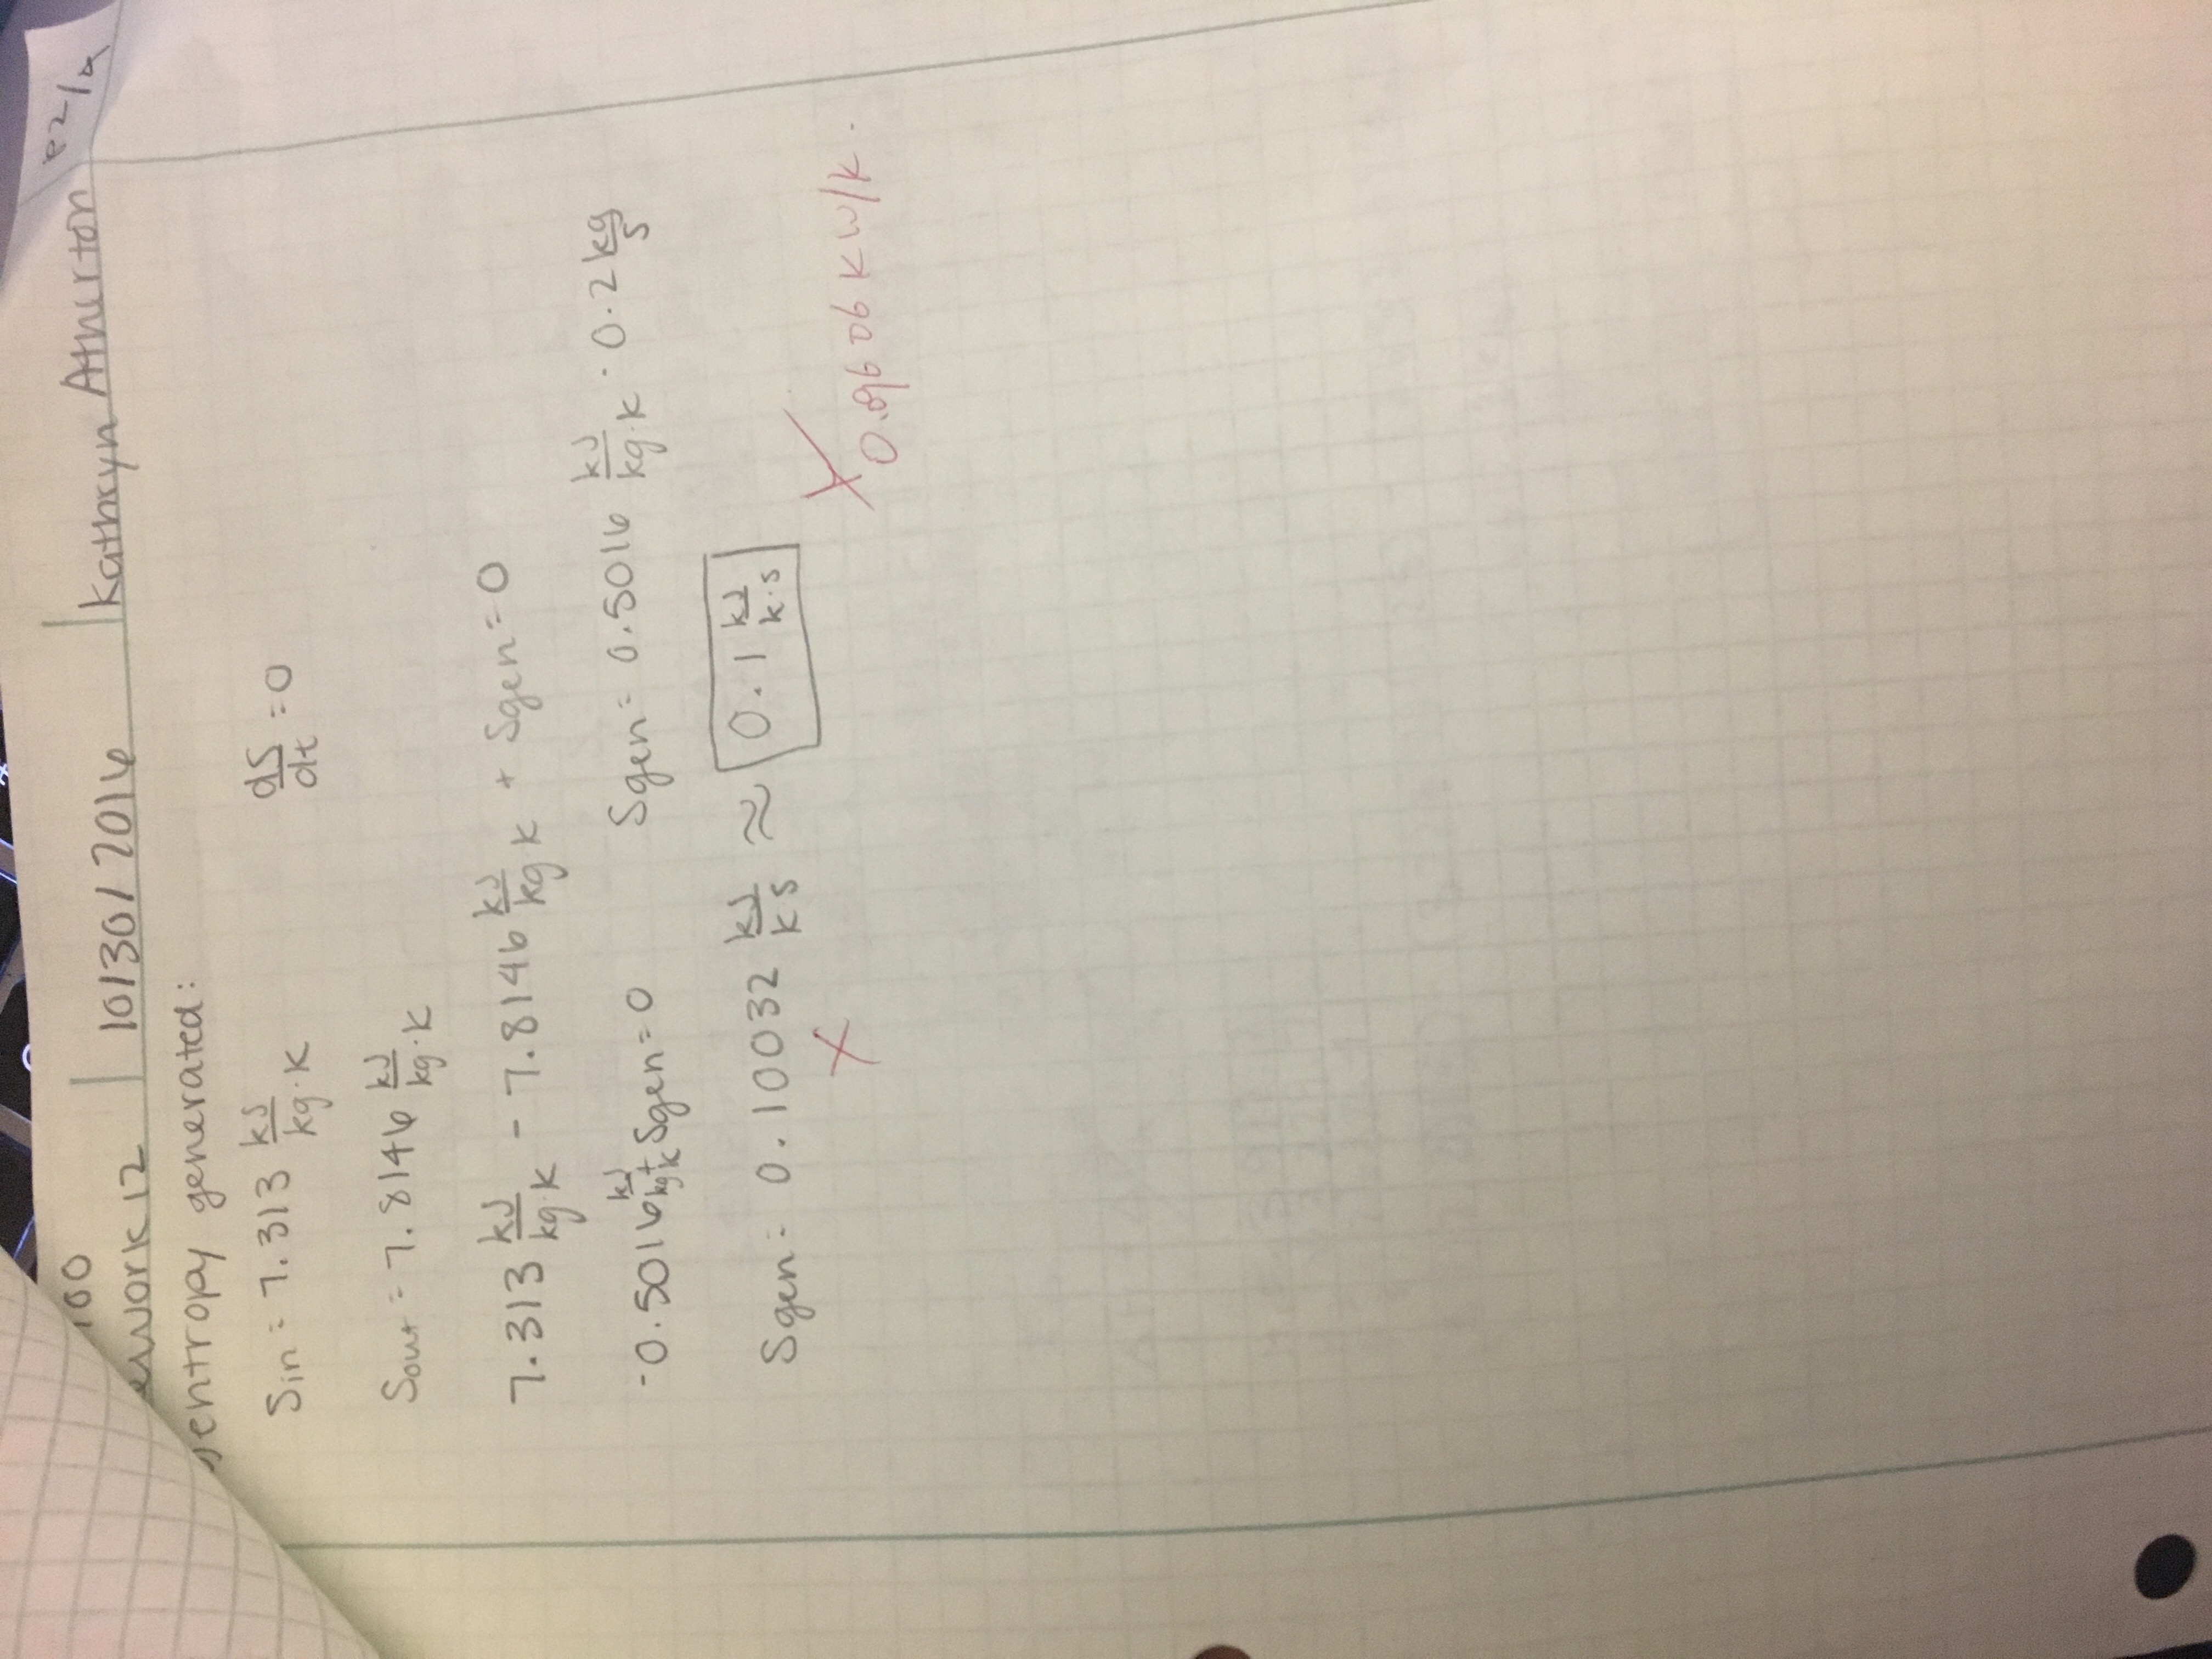 100
ework 12 | 10/30/2016 | Kathryn Atherton P2/4
entropy generated:
Sin = 7.313 kJ/kg·K dS/dt = 0
Sout = 7.8146 kJ/kg·K
7.313 kJ/kg·K - 7.8146 kJ/kg K + Sgen = 0
-0.5016 kJ/kg K + Sgen = 0 Sgen = 0.5016 kJ/kg·K · 0.2 kg/s
Sgen = 0.10032 kJ/K S ≈ 0.1 kJ/K·S
X X 0.09606 KW/K.